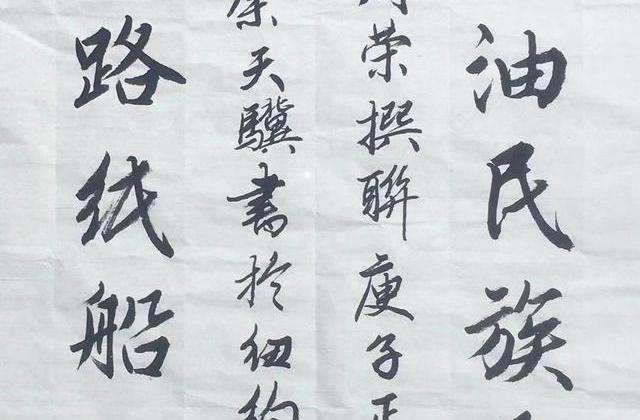 油民族
荣撰聯庚子正
天驥書於纽约
路纸船